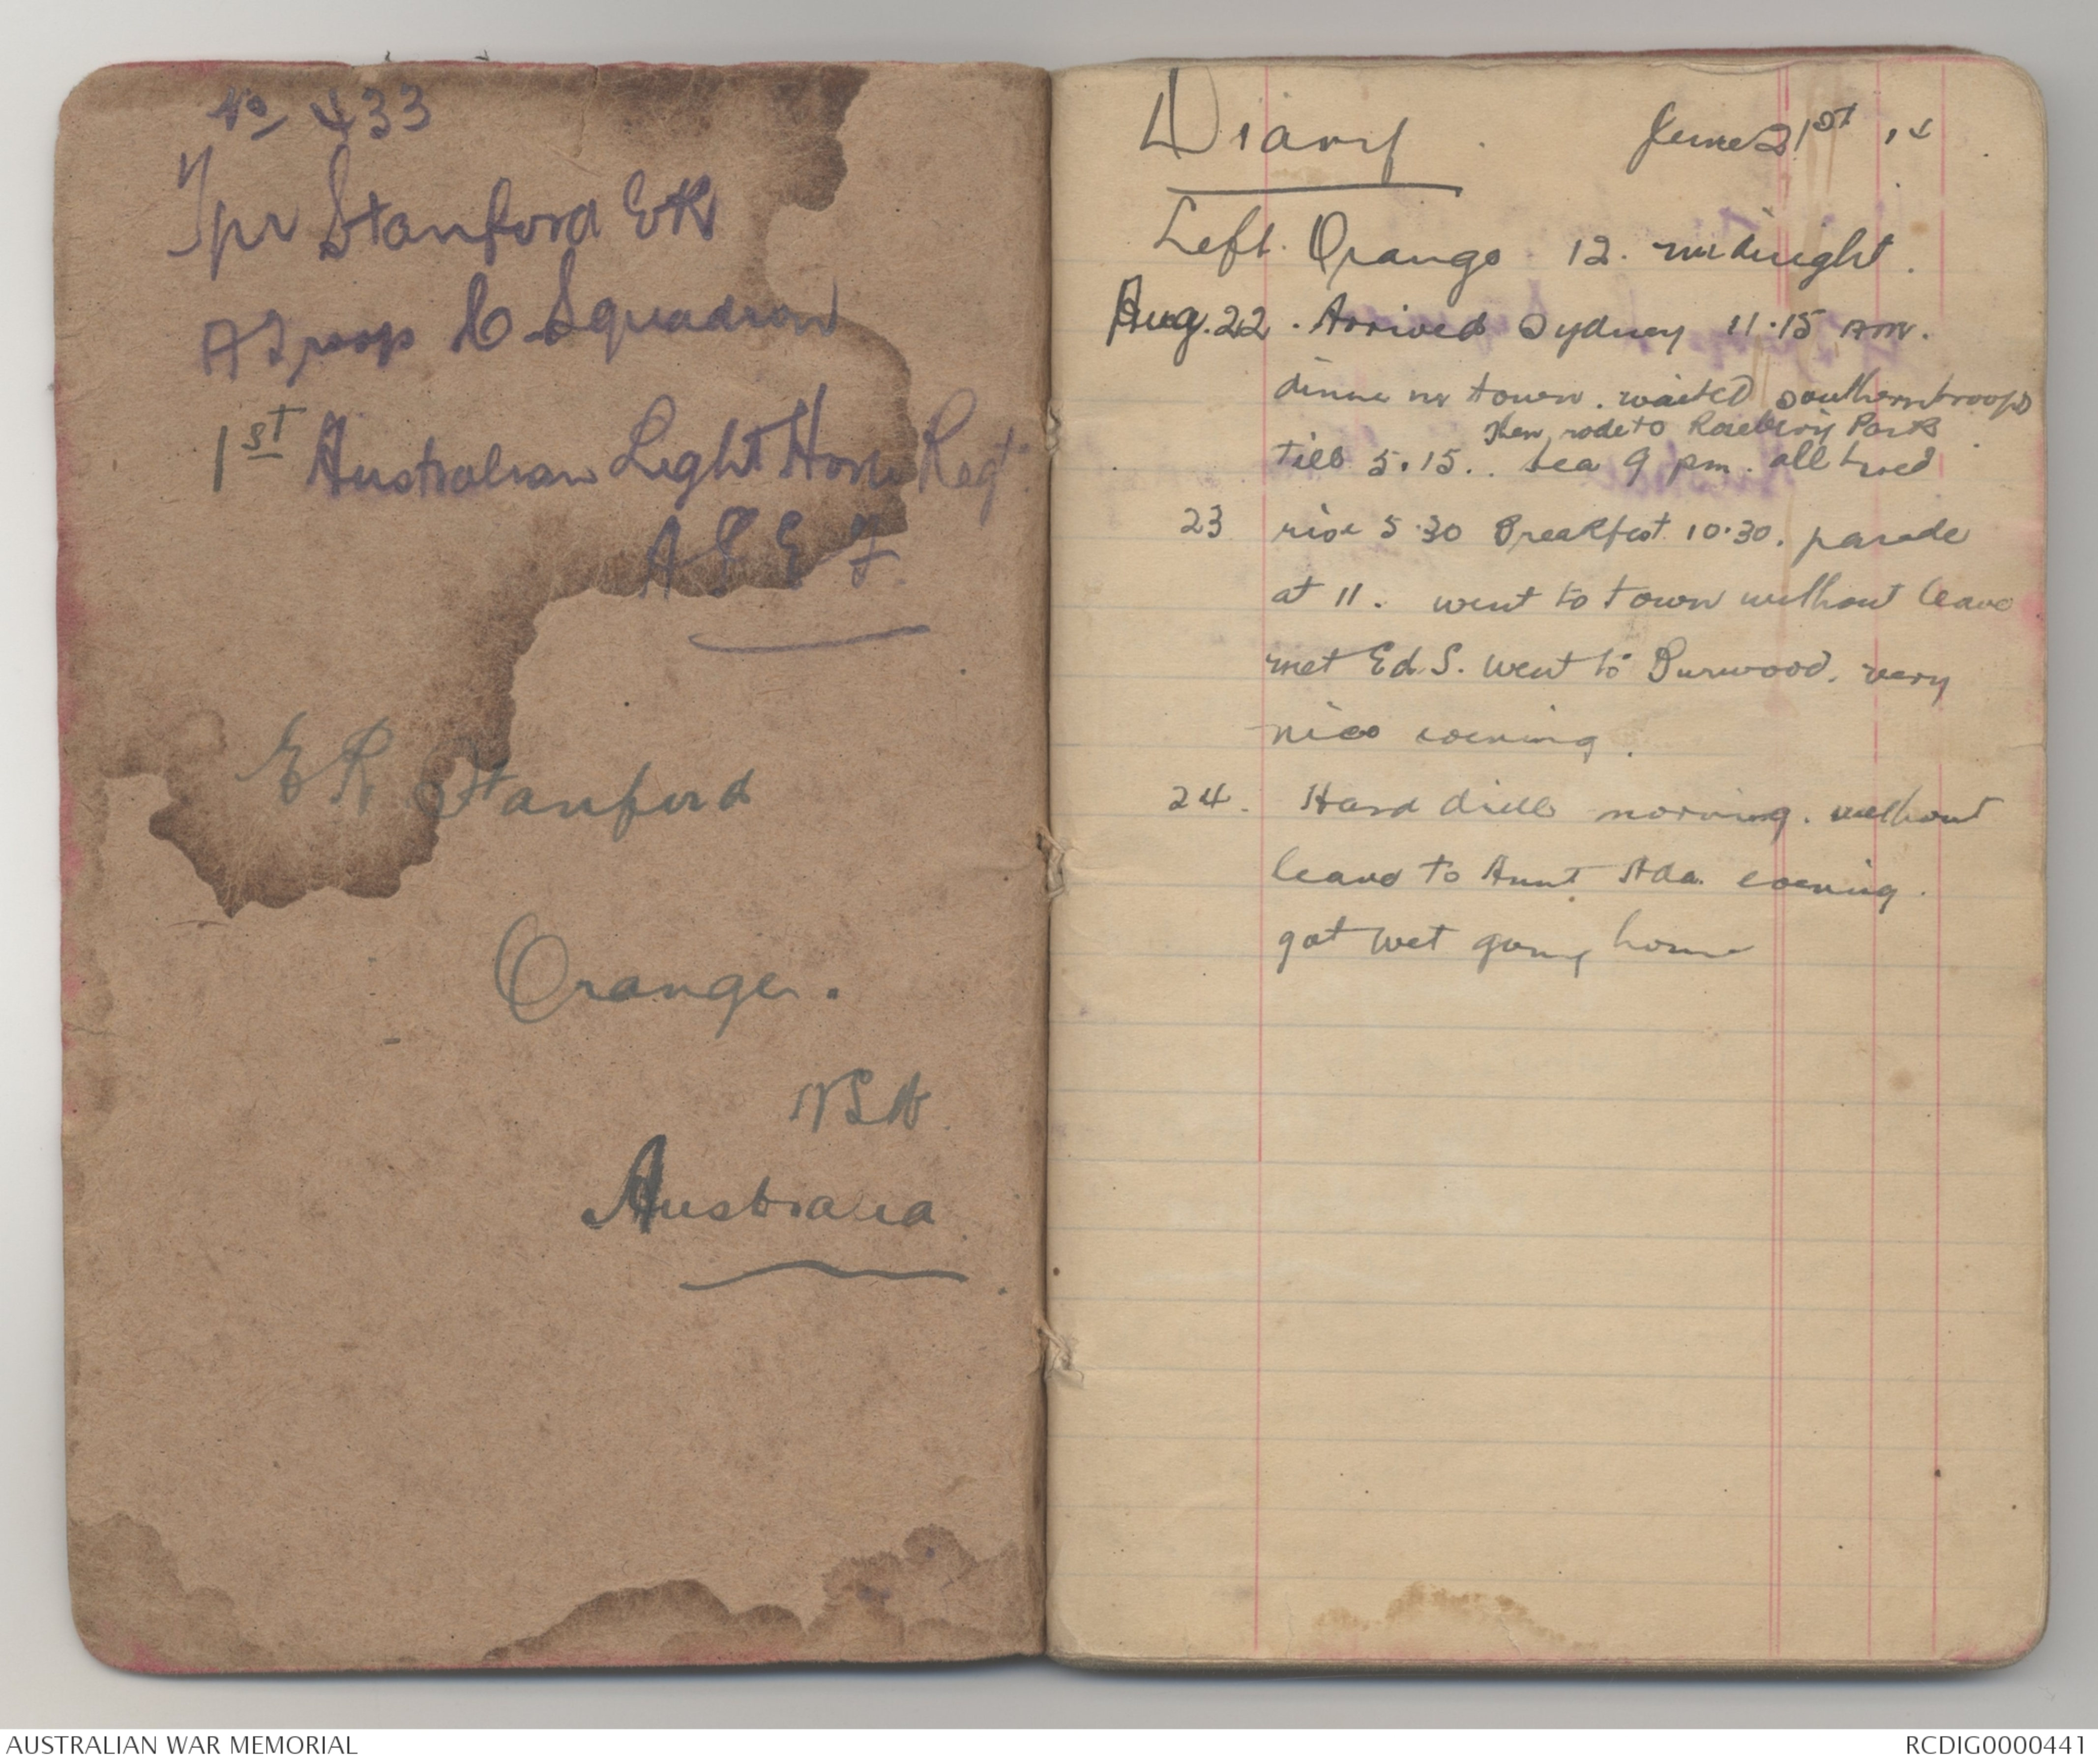 No 433
Tpr Stanford ER
A Troop C Squadron
1st Australian Light Horse Regt
A I E F.
ER Stanford
Orange.
NSW
Australia
Diary. June 21st 14
Left. Orange 12. midnight.
Aug. 22. Arrived Sydney 11.15 AM.
dinner in town. waited southern troops
then rode to Rosebery Park
till 5.15.. tea 9 pm. all tired
23 rise 5.30 Breakfast 10.30. parade
at 11. went to town without leave
met Ed. S. went to Burwood. very
nice evening.
24. Hard drill morning. without
leave to Aunt Ada. evening.
got wet going home
AUSTRALIAN WAR MEMORIAL
RCDIG0000441